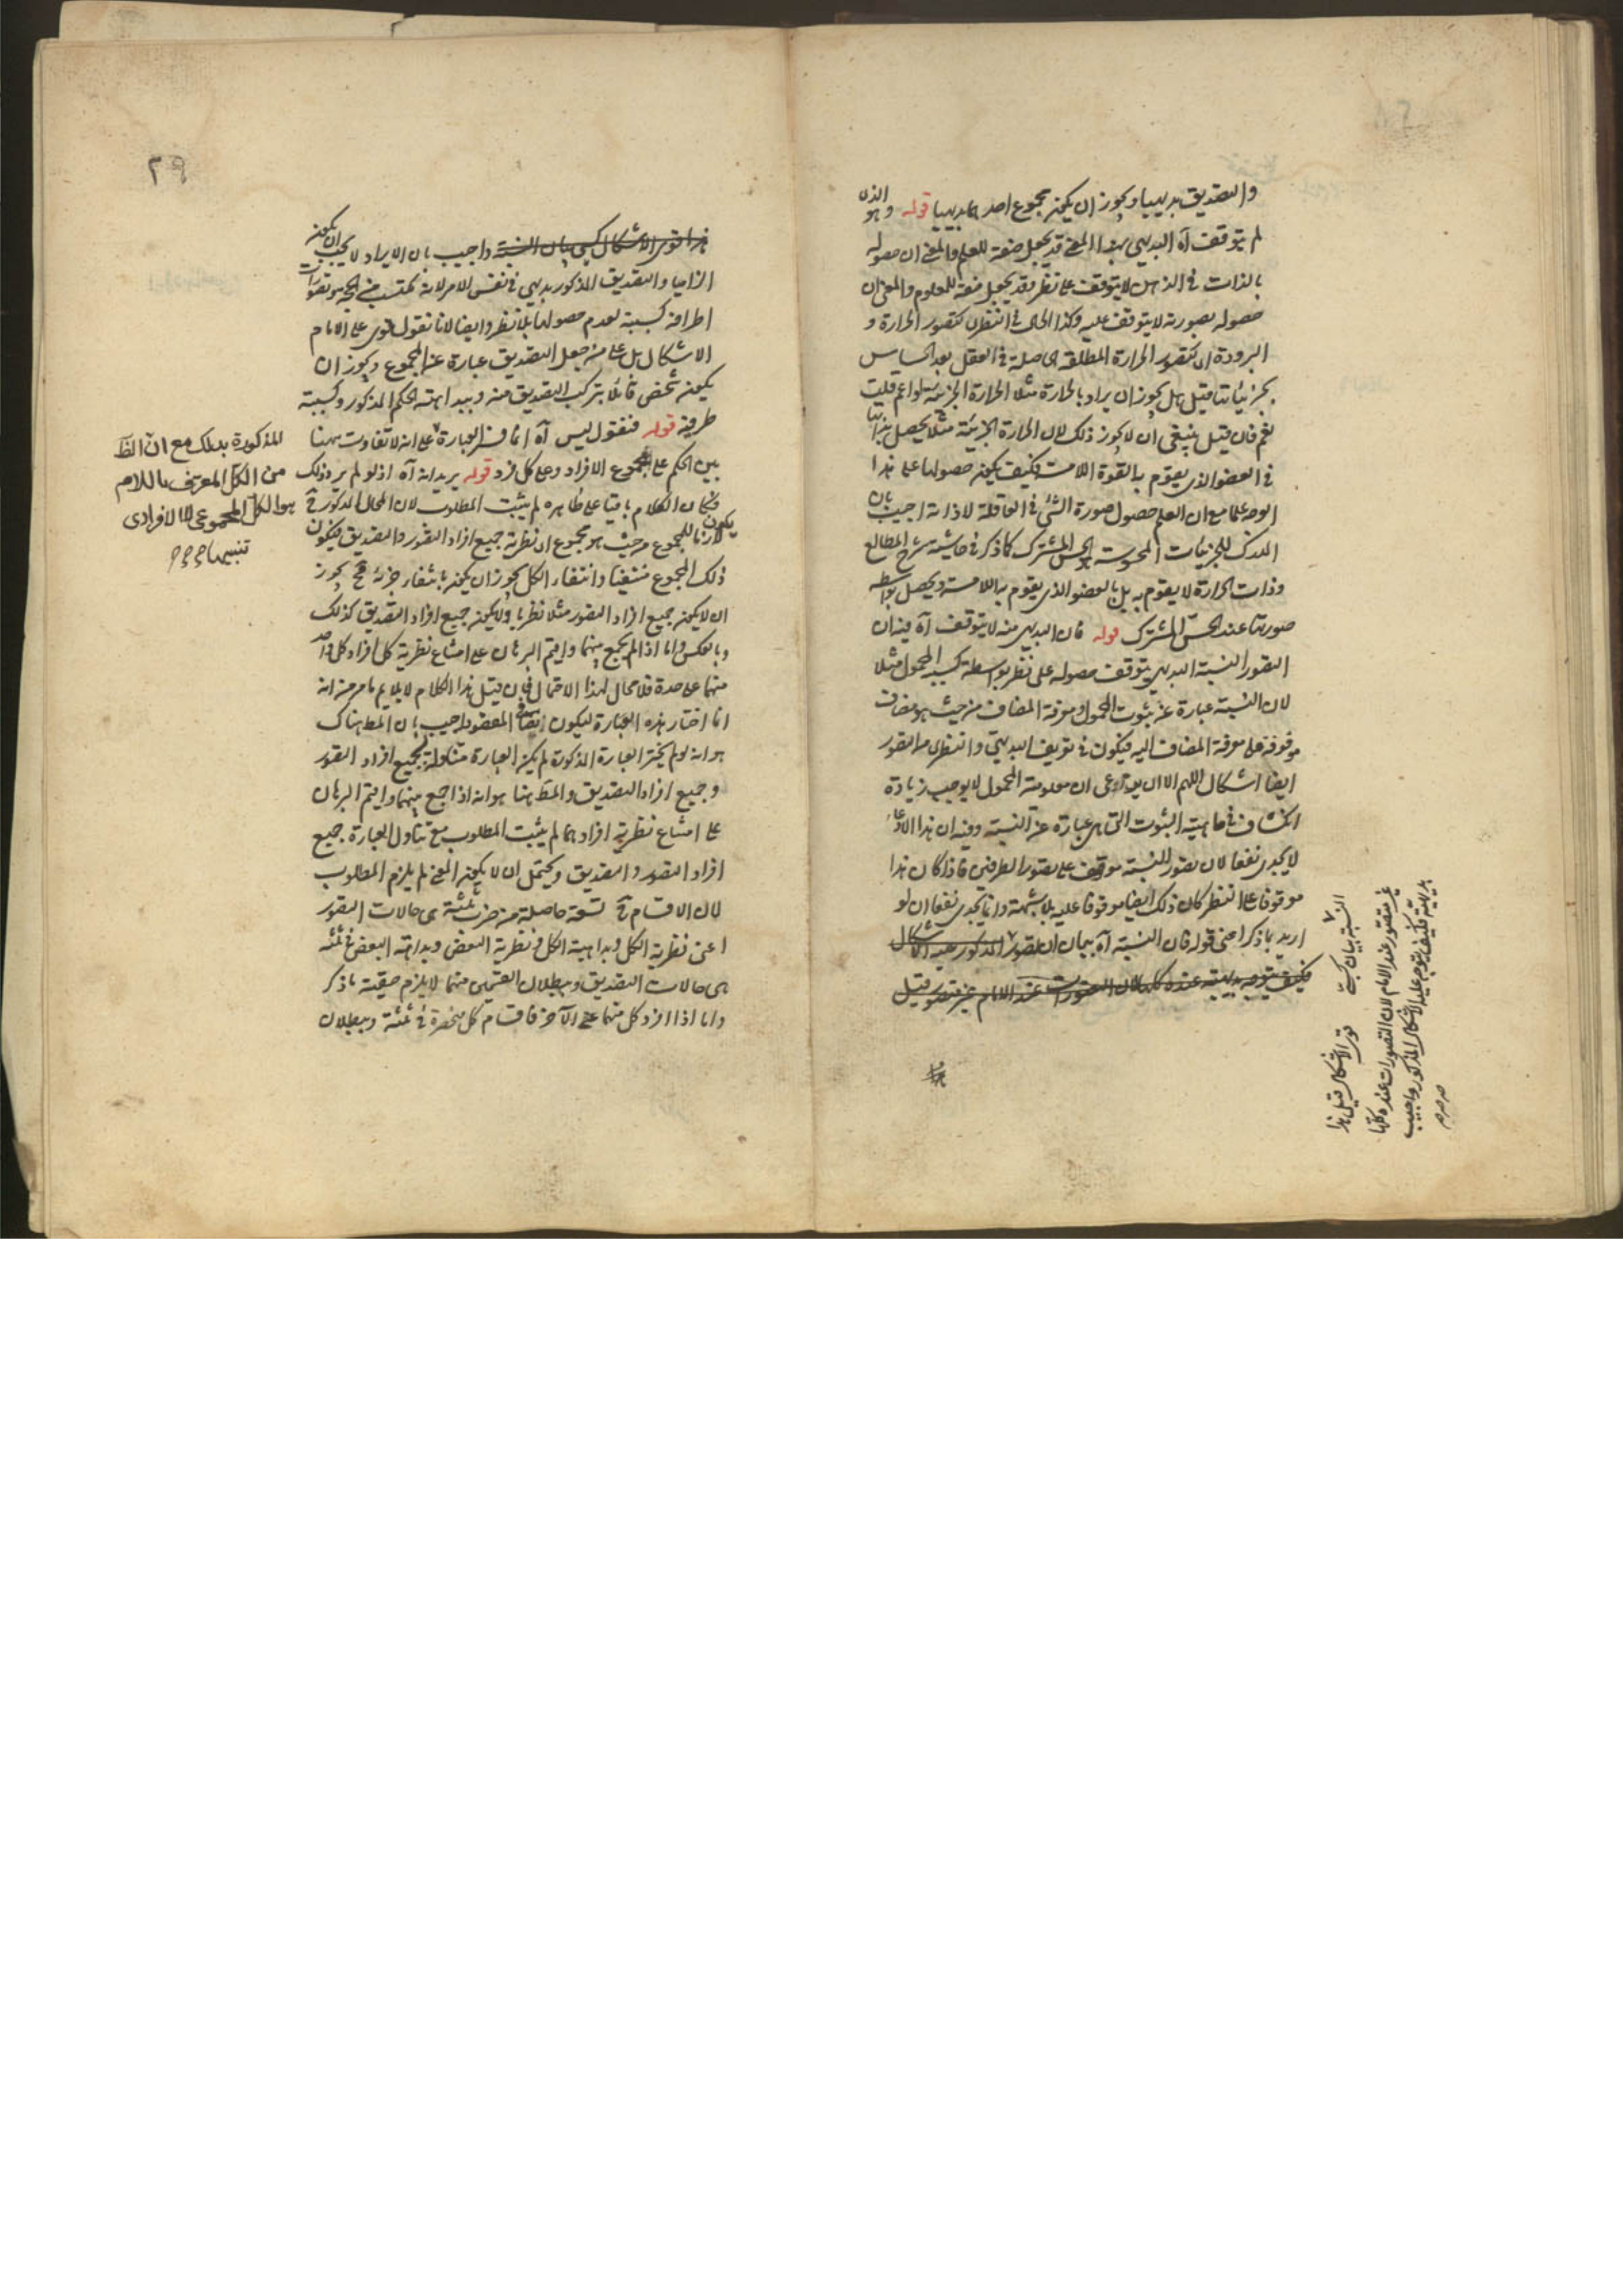 والتصديق بديهيا ويجوز ان يكون مجموع احدهما بديهيا قوله وهو الذى
لم يتوقف آه البديهى بهذا المعنى قد يجعل صفة للعلم والمعنى ان حصوله
بالذات فى الذهن لا يتوقف على نظر وقد يجعل صفة للمعلوم والمعنى ان
حصوله بصورته لا يتوقف عليه وكذا الحال فى النظرى كتصور الحرارة و
البرودة اى كتصور الحرارة المطلقة الحاصلة فى العقل بعد احساس
بجزئياتها قيل هل يجوز ان يراد بالحرارة مثلا الحرارة الجزئية او اعم قلت
نعم فان قيل ينبغى ان لا يجوز ذلك لان الحرارة الجزئية مثلا يحصل بذاتها
فى العضو الذى يقوم به القوة اللامسة فكيف يكون حصولها على هذا
الوجه علما مع ان العلم حصول صورة الشئ فى العاقلة لا ذاته اجيب بان
المدرك للجزئيات المحسوسة هو الحس المشترك كما ذكر فى حاشية شرح المطالع
وذات الحرارة لا يقوم به بل بالعضو الذى يقوم به اللامسة ويحصل بواسطة
صورتها عند الحس المشترك قوله فان البديهى منه لا يتوقف آه فيه ان
التصور النسبة البديهى يتوقف حصوله على نظر بواسطة كسبية المحمول مثلا
لان النسبة عبارة عن ثبوت المحمول ومعرفة المضاف من حيث هو مضاف
موقوفة على معرفة المضاف اليه فيكون فى تعريف البديهى والنظرى من التصور
ايضا اشكال اللهم الا ان يدعى ان معلومية المحمول لا يوجب زيادة
انكشاف فى ماهية الثبوت التى هى عبارة عن النسبة وفيه ان هذا الادعاء
لا يجدى نفعا لان تصور النسبة موقوف على تصور الطرفين فاذا كان هذا
موقوفا على النظر كان ذلك ايضا موقوفا عليه بلا شبهة وانما يجدى نفعا ان لو
اريد بما ذكر اعنى قوله فان النسبة آه بيان ان التصور المذكور عليه اشكال
فكيف بديهية عنده كلها لان التصورات عند الامام غير متصور قيل
النسبة بيان كسبى قوى الاشكال قيل هذا
غير متصور عند الامام لان التصورات عنده كلها
بديهية فكيف يتوجه عليه الاشكال المذكور واجيب
صح صح
٢٩
هذا قوى الاشكال كسبى بيان النسبة واجيب بان الايراد لا يجب ان يكون
الزاميا والتصديق المذكور بديهى فى نفس الامر لانه مكتسب من الحجة وتصورات
اطرافه كسبية لعدم حصولها بلا نظر وايضا لانا نقول قوى على الامام
الاشكال بل على من جعل التصديق عبارة عن المجموع ويجوز ان
يكون شخص قائلا بتركب التصديق منه وببداهته الحكم المذكور وكسبية
طرفيه قوله فنقول ليس آه انما فسر العبارة على انه لا تفاوت ههنا
بين الحكم على مجموع الافراد وعلى كل فرد قوله يريد انه آه اذ لو لم يرد ذلك
وكان الكلام باقيا على ظاهره لم يثبت المطلوب لان المحال المذكور فى
يكون لازما للمجموع من حيث هو مجموع اى نظرية جميع افراد التصور والتصديق فيكون
ذلك المجموع منتفيا وانتفاء الكل يجوز ان يكون بانتفاء جزئه فح يجوز
ان لا يكون جميع افراد التصور مثلا نظريا ولا يكون جميع افراد التصديق كذلك
وبالعكس واما اذا لم يجمع بينهما واقيم البرهان على امتناع نظرية كل افراد كل واحد
منهما على حدة فلا مجال لهذا الاحتمال فان قيل هذا الكلام لا يلايم ما مر من انه
انما اختار هذه العبارة ليكون ايضا المقصود اجيب بان المط هناك
هو انه لو لم يختر العبارة المذكورة لم يكن العبارة متناولة لجميع افراد التصور
وجميع افراد التصديق والمط ههنا هو انه اذا جمع بينهما واقيم البرهان
على امتناع نظرية افرادهما لم يثبت المطلوب مع تناول العبارة جميع
افراد التصور والتصديق ويحتمل ان لا يكون المعنى لم يلزم المطلوب
لان الاقسام ح تسعة حاصلة من ضرب ثلثة هى حالات التصور
اعنى نظرية الكل وبداهية الكل ونظرية البعض وبداهة البعض فى ثلثة
هى حالات التصديق وببطلان القسمين منهما لا يلزم حقيقة ما ذكر
واما اذا افرد كل منهما عن الآخر فاقسام كل منحصرة فى ثلثة وببطلان
المذكورة بدلك مع ان الظ
من الكل المعرف باللام
هو الكل المجموعى لا الافرادى
تنبيها